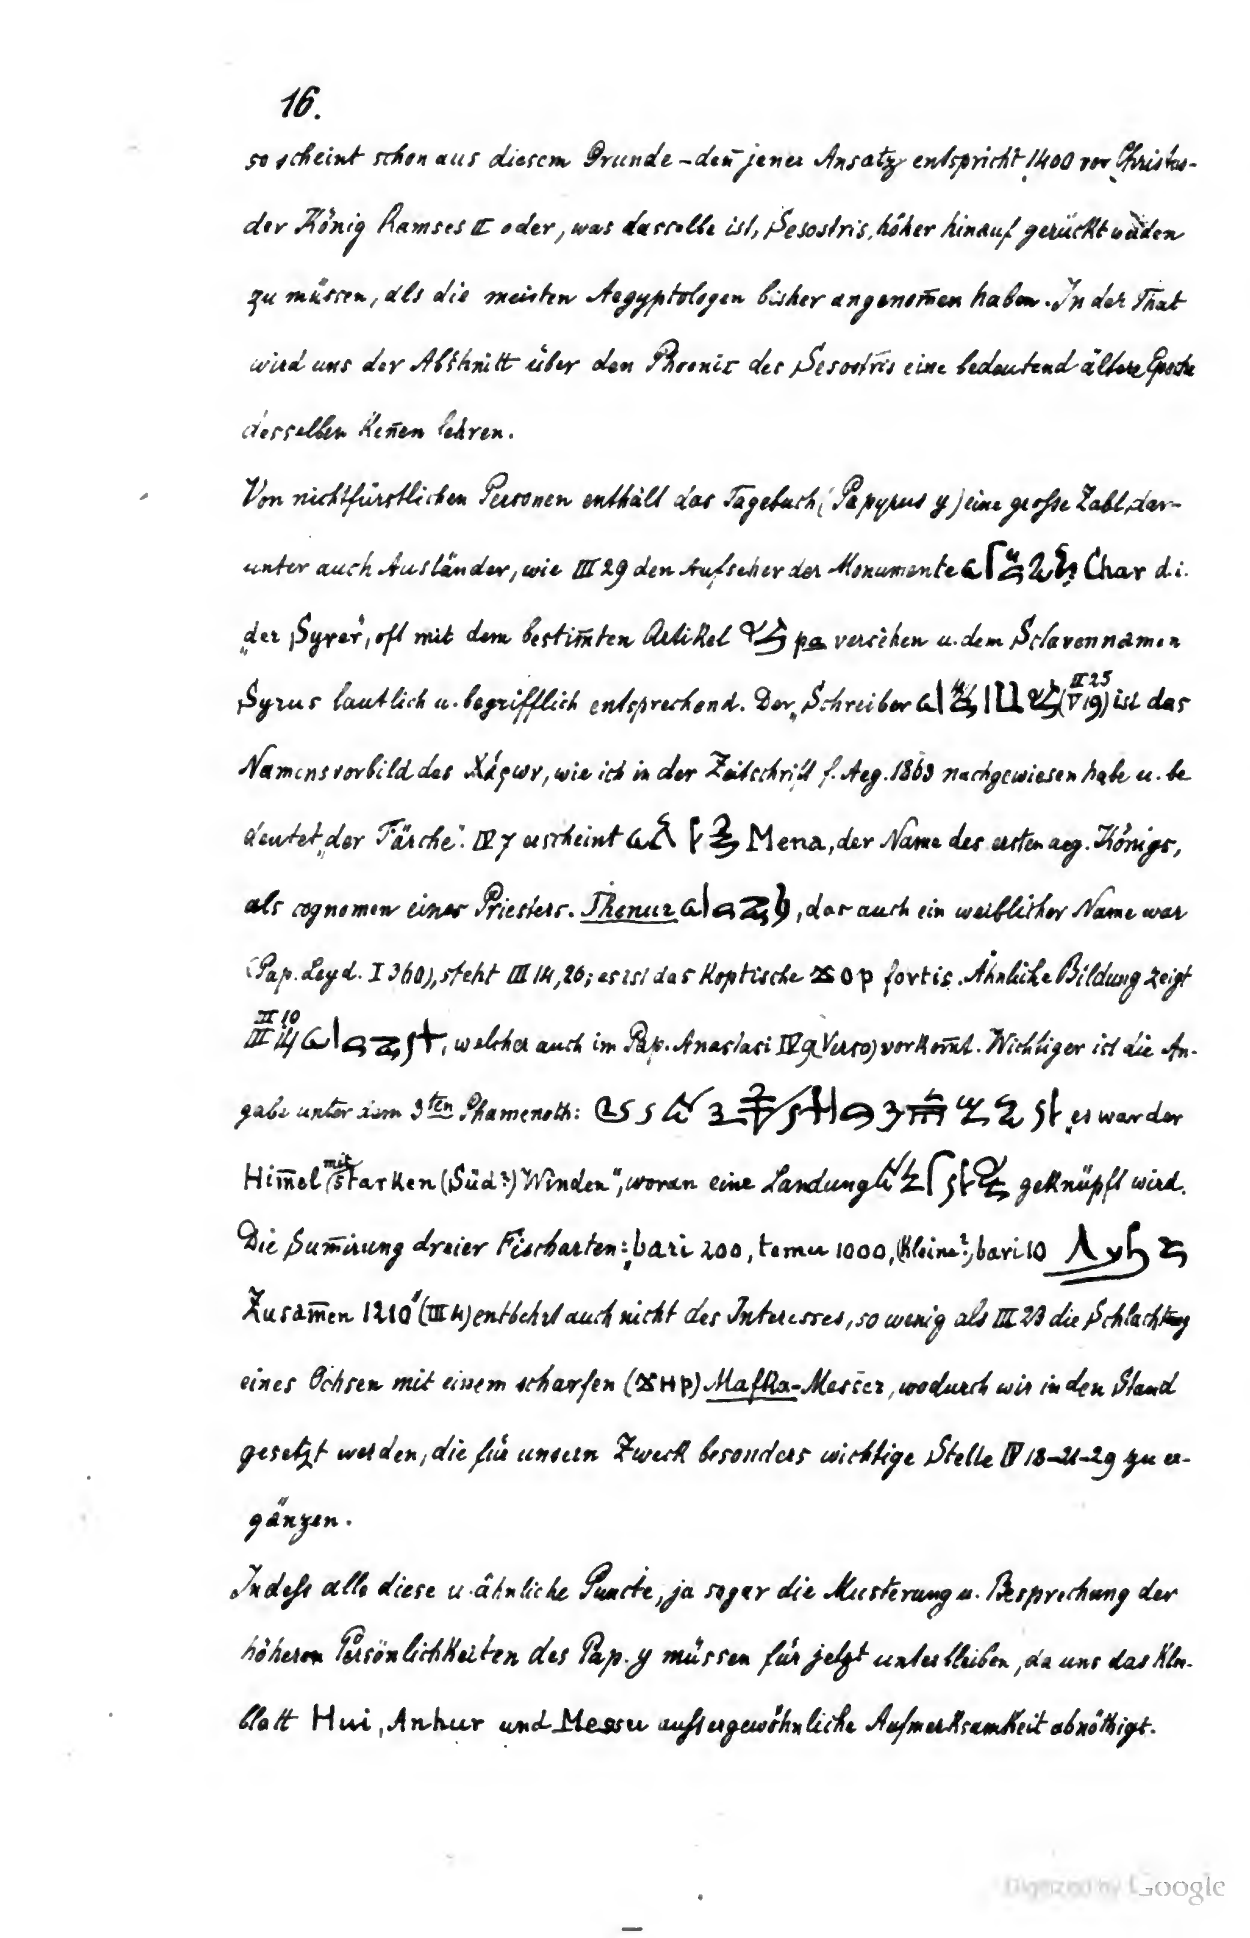 16.
so scheint schon aus diesem Grunde – den̄ jener Ansatz entspricht 1400 vor Christus –
der König Ramses II oder, was dasselbe ist, Sesostris, höher hinauf gerückt werden
zu müssen, als die meisten Aegyptologen bisher angenom̄en haben. In der That
wird uns der Abschnitt über den Phoenix des Sesostris eine bedeutend ältere Epoche
desselben ken̄en lehren.
Von nichtfürstlichen Personen enthält das Tagebuch (Papyrus y) eine große Zahl, dar-
unter auch Ausländer, wie III 29 den Aufseher der Monumente Char d.i.
„der Syrer", oft mit dem bestim̄ten Artikel pa versehen u. dem Sclavennamen
Syrus lautlich u. begrifflich entsprechend. Der „Schreiber (II 25 V 19) ist das
Namensvorbild des Χάρων, wie ich in der Zeitschrift f. Aeg. 1863 nachgewiesen habe u. be
deutet „der Färche". IV 7 erscheint Mena, der Name des ersten aeg. Königs,
als cognomen eines Priesters. Thenur, das auch ein weiblicher Name war
(Pap. Leyd. I 360), steht III 14, 26; es ist das Koptische ϫⲟⲣ fortis. Ähnliche Bildung zeigt
II 10 III 14, welcher auch im Pap. Anastasi IV 9 (Verso) vorkom̄t. Wichtiger ist die An-
gabe unter dem 3ten Phamenoth: „es war der
Him̄el mit starken (Süd?) Winden", woran eine Landung geknüpft wird.
Die Sum̄irung dreier Fischarten: „bari 200, temu 1000, (Kleine?) bari 10
Zusam̄en 1210" (III 4) entbehrt auch nicht des Interesses, so wenig als III 23 die Schlachtung
eines Ochsen mit einem scharfen (ϫⲏⲣ) Mafka-Messer, wodurch wir in den Stand
gesetzt werden, die für unsern Zweck besonders wichtige Stelle IV 18-21-29 zu er-
gänzen.
Indeß alle diese u. ähnliche Puncte, ja sogar die Musterung u. Besprechung der
höheren Persönlichkeiten des Pap. y müssen für jetzt unterbleiben, da uns das Kle-
blatt Hui, Anhur und Messu außergewöhnliche Aufmerksamkeit abnöthigt.
Digitized by Google